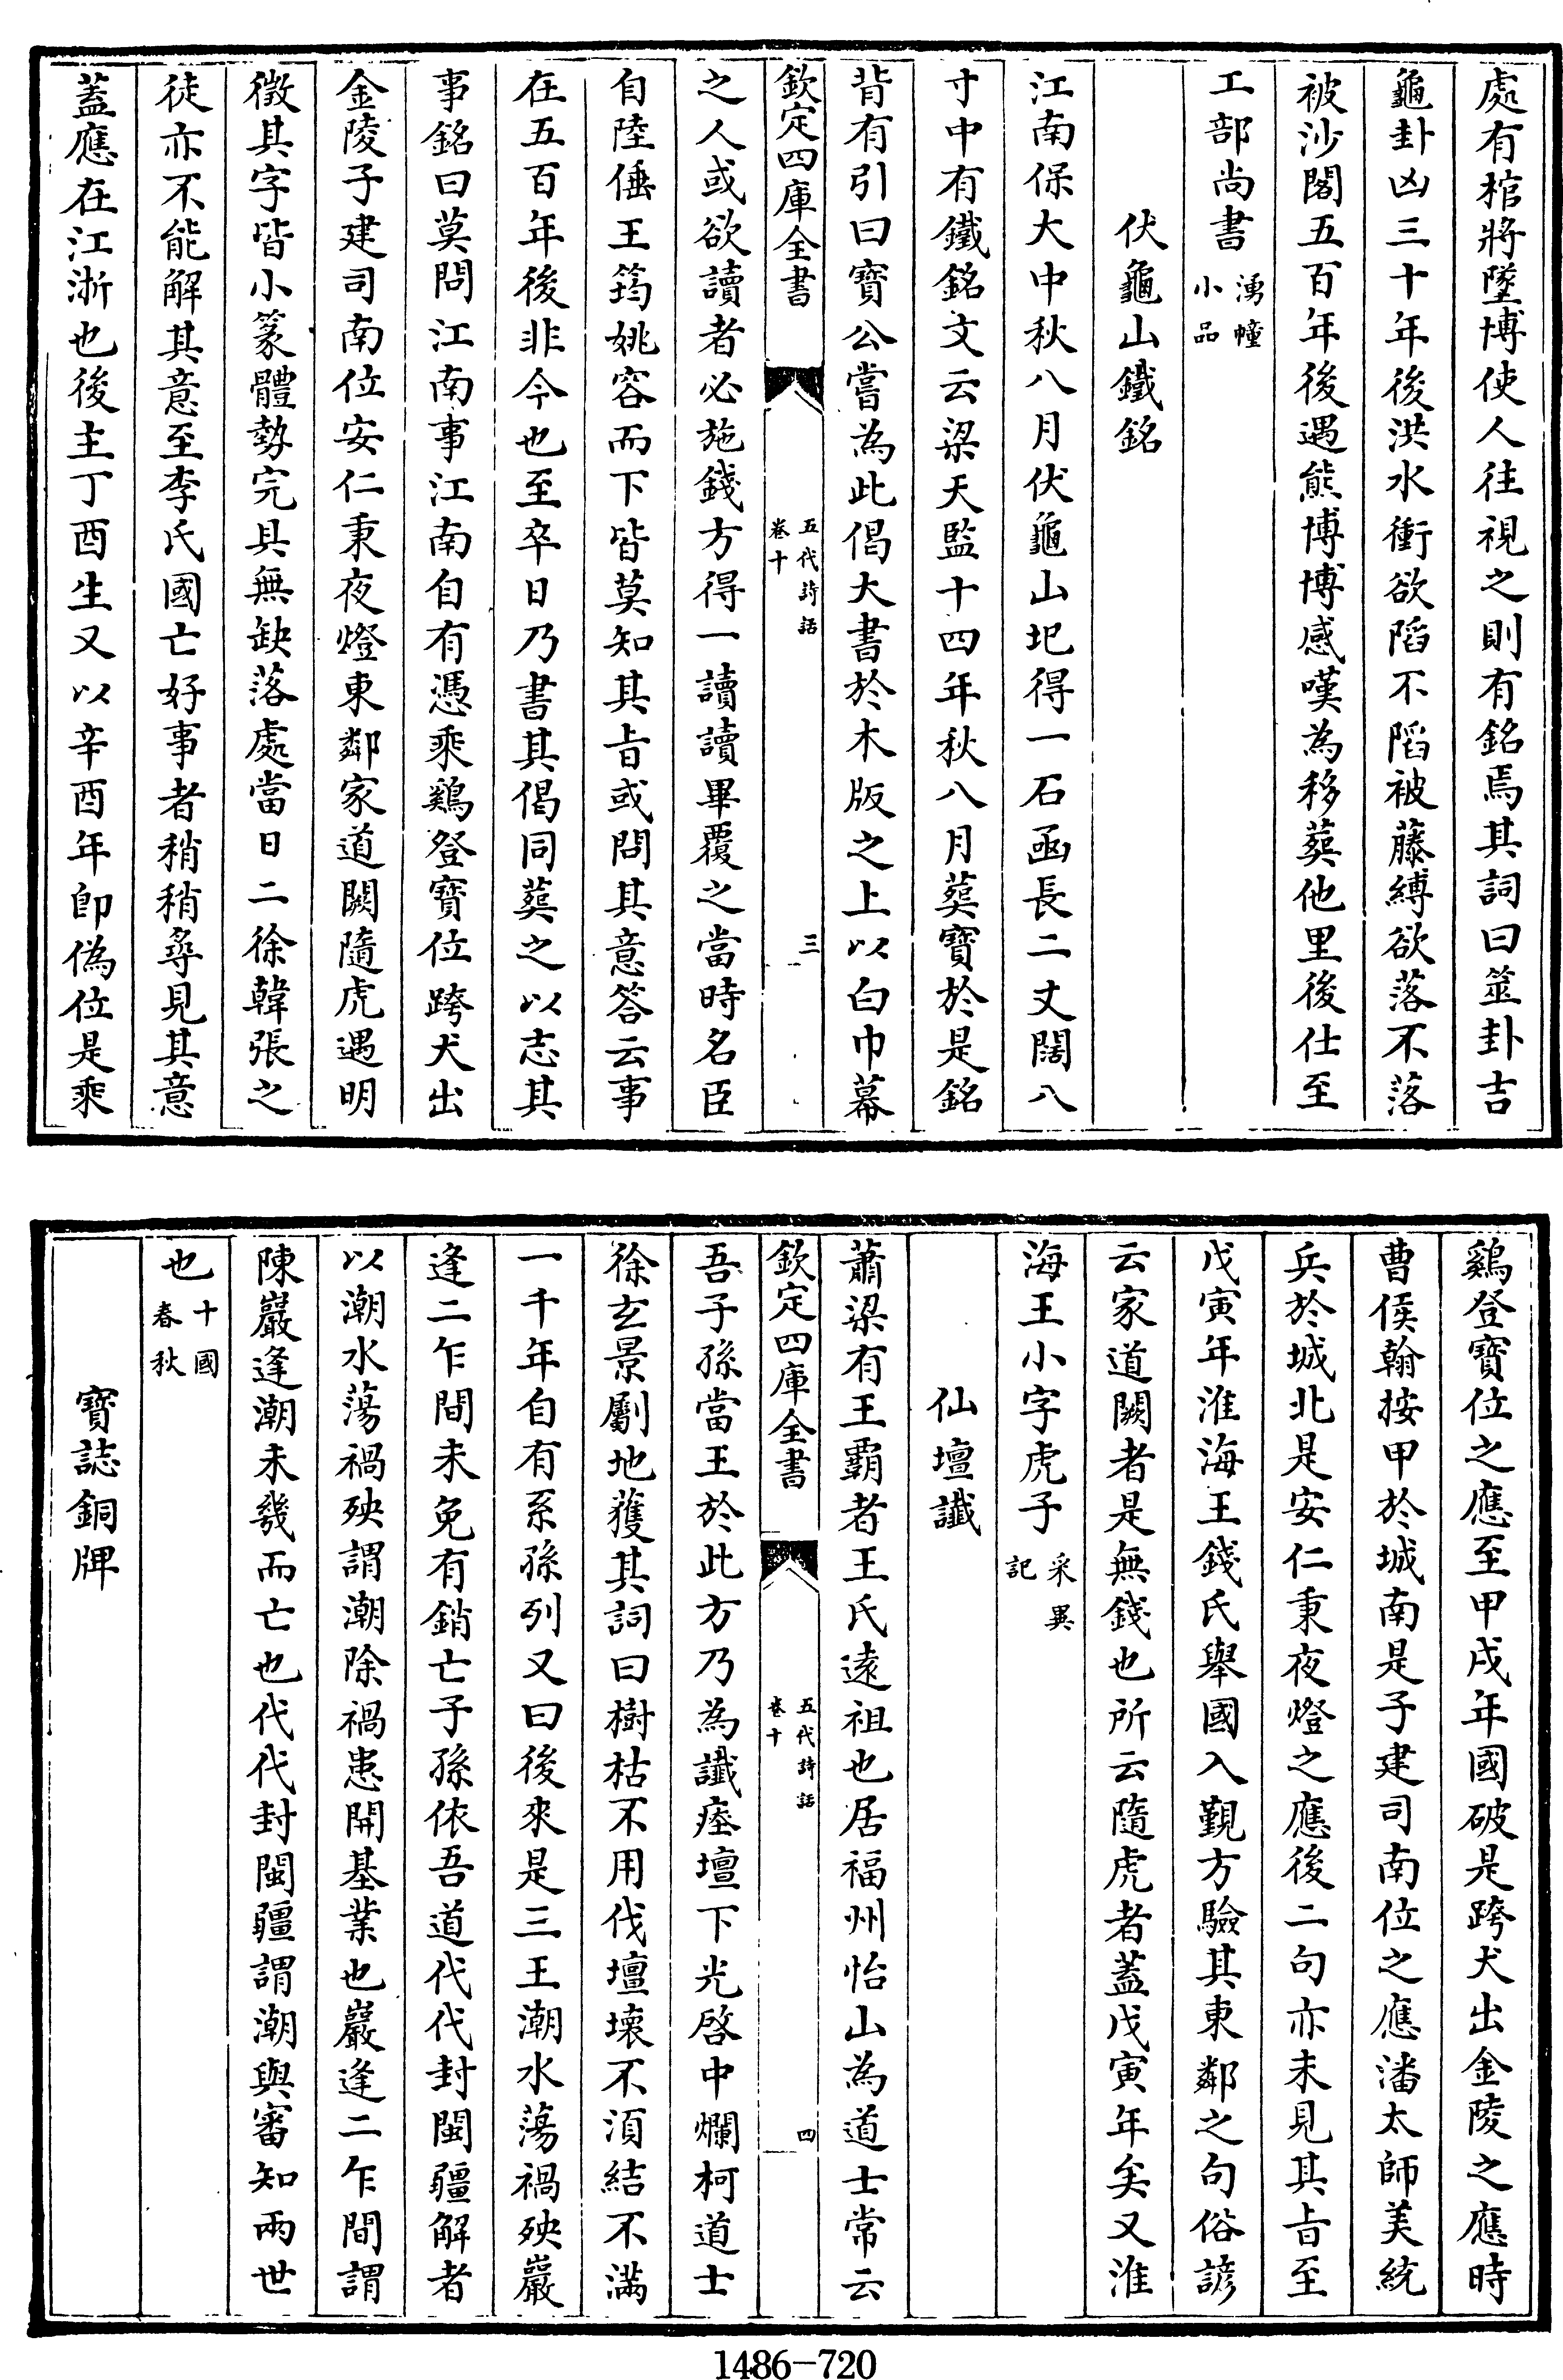 處有棺將墜博使人往視之則有銘焉其詞曰筮卦吉
龜卦凶三十年後洪水衝欲陷不陷被藤縛欲落不落
被沙閣五百年後遇熊博博感嘆為移葬他里後仕至
工部尚書湧幢小品
伏龜山鐵銘
江南保大中秋八月伏龜山圯得一石函長二丈闊八
寸中有鐵銘文云梁天監十四年秋八月葬寶於是銘
背有引曰寶公嘗為此偈大書於木版之上以白巾幕
欽定四庫全書 五代詩話卷十 三
之人或欲讀者必施錢方得一讀讀畢覆之當時名臣
自陸倕王筠姚容而下皆莫知其旨或問其意答云事
在五百年後非今也至卒日乃書其偈同葬之以志其
事銘曰莫問江南事江南自有憑乘鷄登寶位跨犬出
金陵子建司南位安仁秉夜燈東鄰家道闕隨虎遇明
徵其字皆小篆體勢完具無缺落處當日二徐韓張之
徒亦不能解其意至李氏國亡好事者稍稍尋見其意
蓋應在江浙也後主丁酉生又以辛酉年即偽位是乘
鷄登寶位之應至甲戌年國破是跨犬出金陵之應時
曹侯翰按甲於城南是子建司南位之應潘太師美統
兵於城北是安仁秉夜燈之應後二句亦未見其旨至
戊寅年淮海王錢氏舉國入覲方驗其東鄰之句俗諺
云家道闕者是無錢也所云隨虎者蓋戊寅年矣又淮
海王小字虎子采異記
仙壇讖
蕭梁有王霸者王氏遠祖也居福州怡山為道士常云
欽定四庫全書 五代詩話卷十 四
吾子孫當王於此方乃為讖瘞壇下光啓中爛柯道士
徐玄景劚地獲其詞曰樹枯不用伐壇壞不須結不滿
一千年自有系孫列又曰後來是三王潮水蕩禍殃巖
逢二乍間未免有銷亡子孫依吾道代代封閩疆解者
以潮水蕩禍殃謂潮除禍患開基業也巖逢二乍間謂
陳巖逢潮未幾而亡也代代封閩疆謂潮與審知兩世
也十國春秋
寶誌銅牌
1486-720